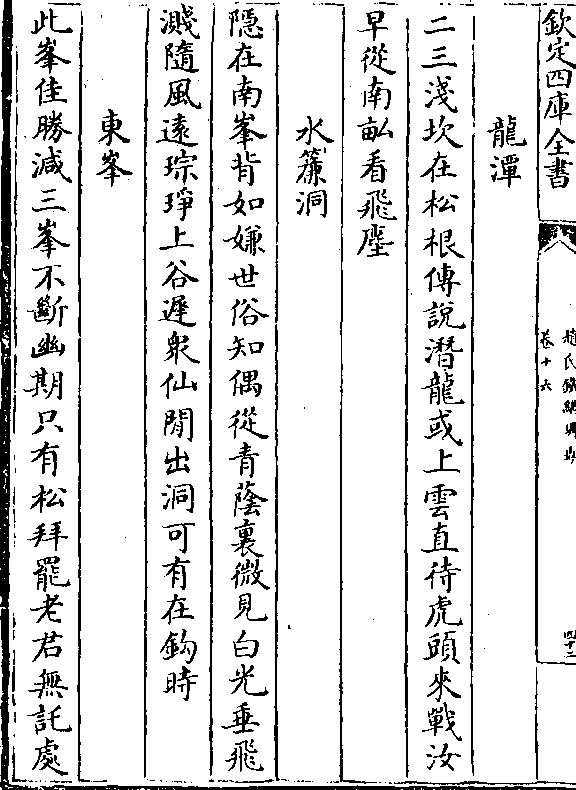 欽定四庫全書
趙氏鐵網珊瑚
卷十六
四十二
龍潭
二三淺坎在松根傳說潛龍或上雲直待虎頭來戰汝
早從南畝看飛塵
水簾洞
隱在南峯背如嫌世俗知偶從青蔭裏微見白光垂飛
濺隨風遠琮琤上谷遲衆仙閒出洞可有在鈎時
東峯
此峯佳勝減三峯不斷幽期只有松拜罷老君無託處